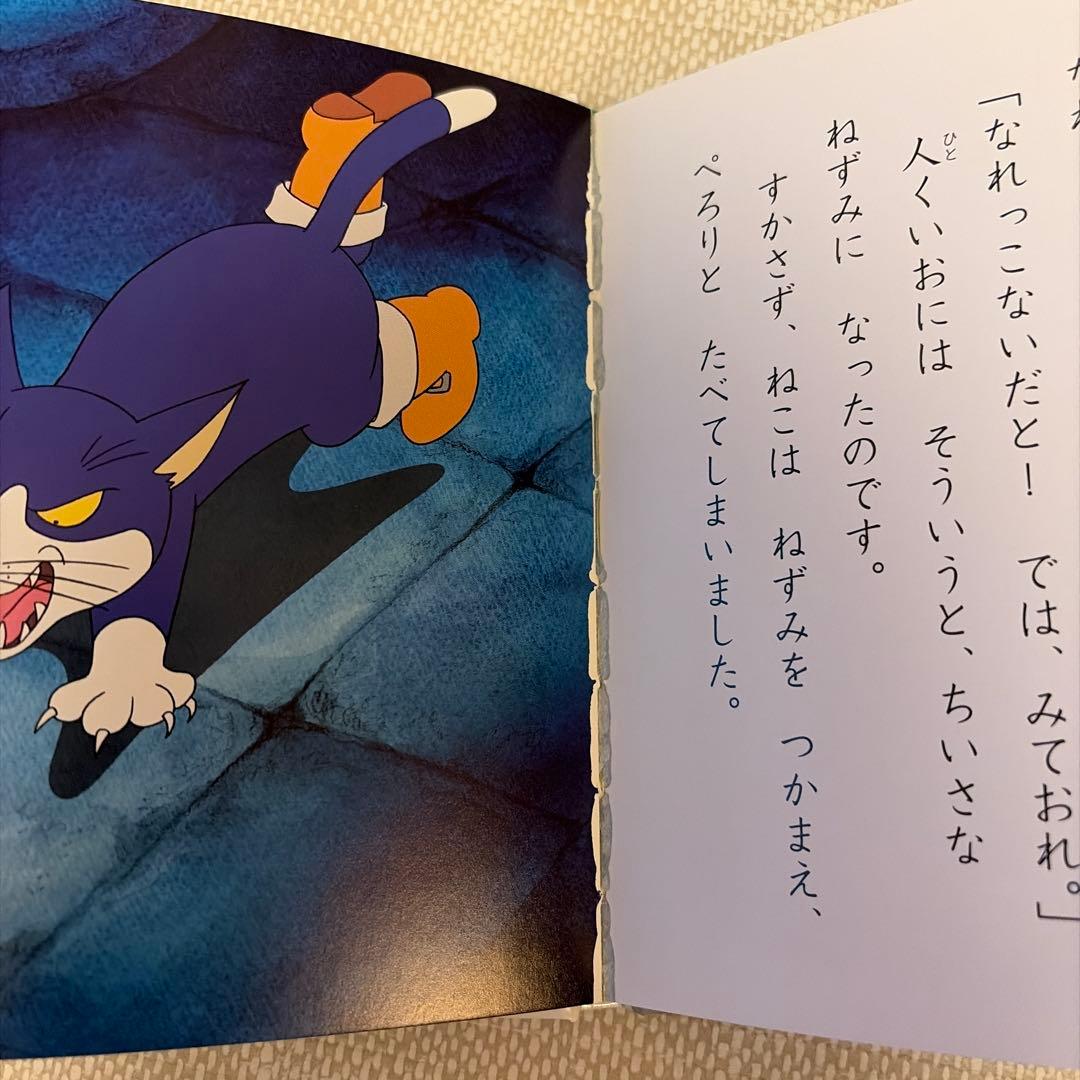 「なれっこないだと！　では、みておれ。」
人くいおには　そういうと、ちいさな
ひと
ねずみに　なったのです。
すかさず、ねこは　ねずみを　つかまえ、
ぺろりと　たべてしまいました。